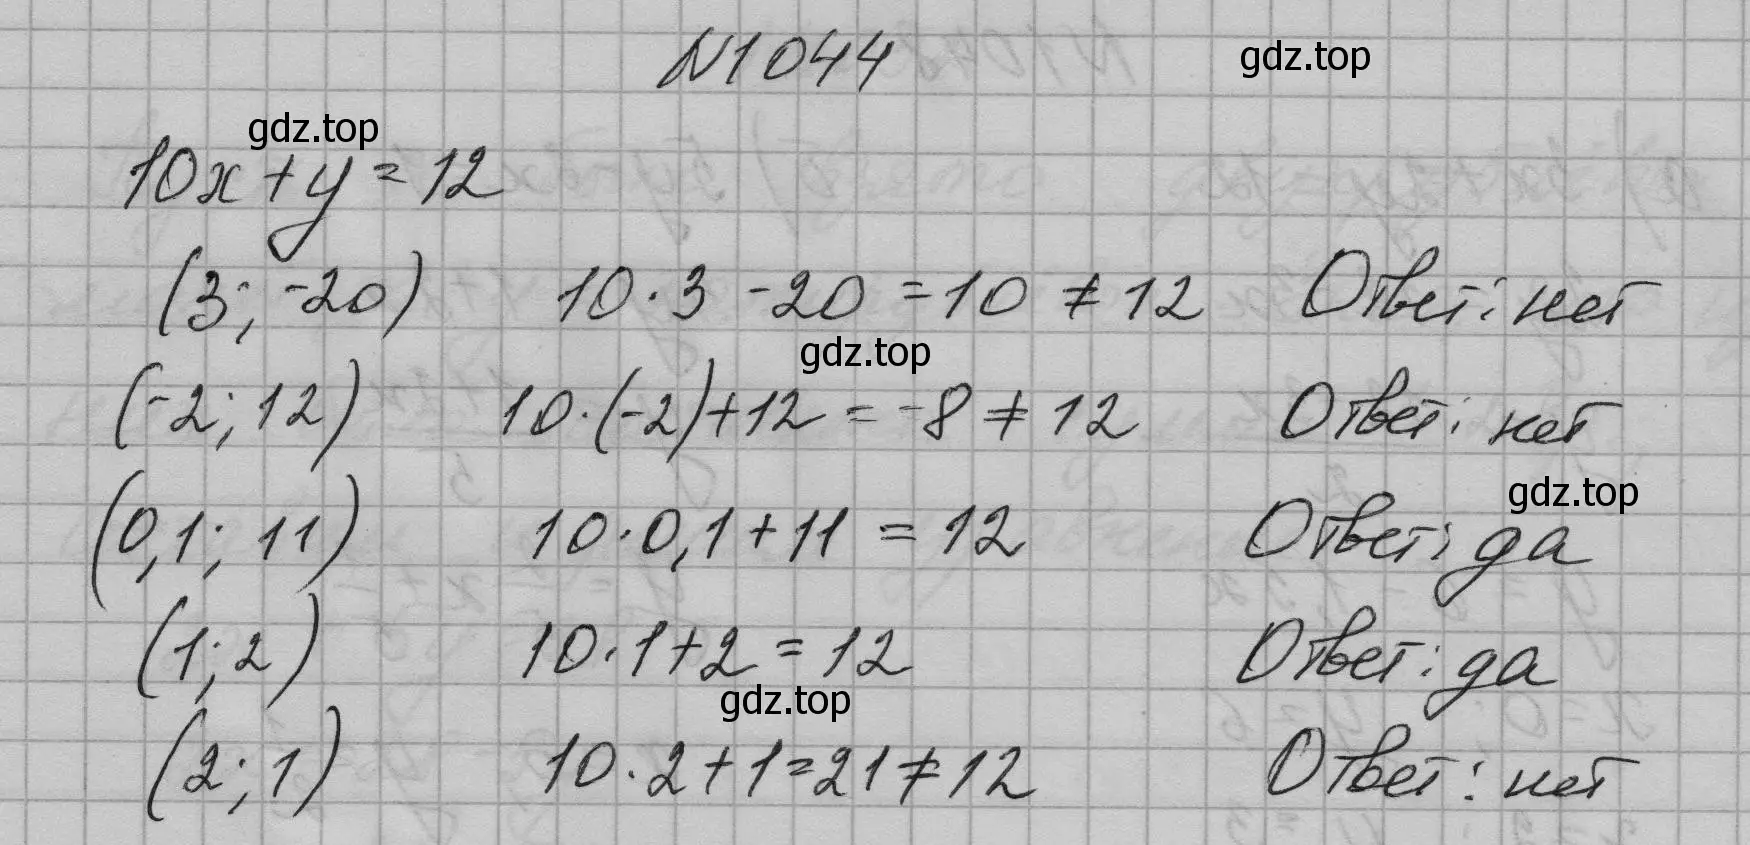 N1044
gdz.top
gdz.top
10x+y=12
(3; -20) 10·3 -20 =10 ≠12 Ответ: нет
gdz.top
(-2; 12) 10·(-2)+12 = -8 ≠ 12 Ответ: нет
gdz.top
(0,1; 11) 10·0,1+11 = 12 Ответ: да
(1; 2) 10·1+2 = 12 Ответ: да
gdz.top
(2; 1) 10·2+1=21≠12 Ответ: нет